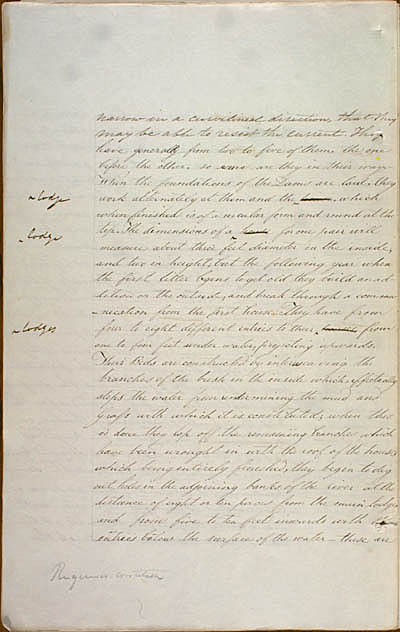 narrow in a curvilineal direction, that they
may be able to resist the current. They
have generally from two to five of them, the one
before the other. so are they in their
When the foundations of the Dams are laid, they
lodge
work alternately at them and the which
when finished is of a circular form and round at the
lodge
top. The dimensions of a for one pair will
measure about three feet diameter in the inside,
and two in height, but the following year when
the first litter begins to get old they build an ad-
dition on the outside, and break through a commu-
nication from the first house. They have from
lodges
four to eight different entries to their from
one to four feet under water, projecting upwards.
Their Beds are constructed by interweaving the
branches of the bush in the inside which effectually
stops the water from undermining the mud and
grass with which it is constructed, when this
is done they lop off the remaining branches which
have been wrought in with the roof of the house
which being entirely finished, they begin to dig
out holes in the adjoining banks of the river at the
distance of eight or ten paces from the main lodge
and from five to ten feet inwards with
entries below the surface of the water – these are